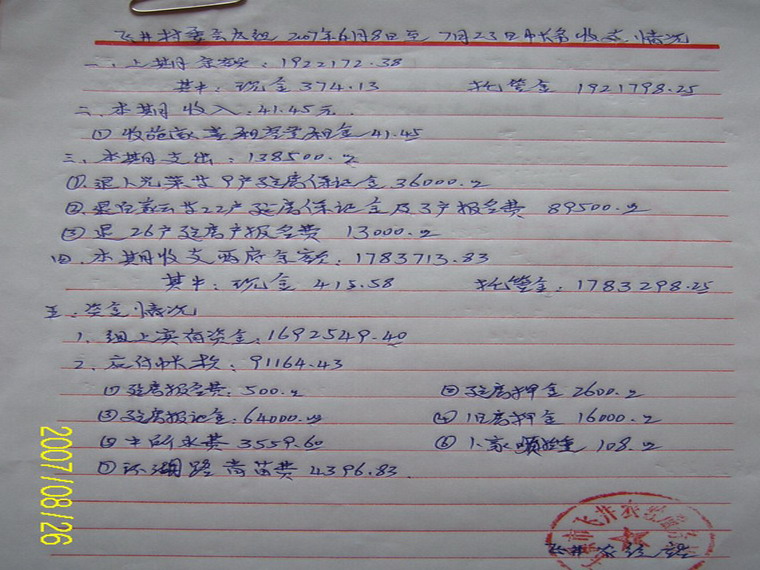 飞井村委会庄组 2007年6月8日至 7月23日帐务收支情况
一、上期余额：1922172.38
其中：现金 374.13 托管金 1921798.25
二、本期收入：41.45元
① 收 租金 41.45
三、本期支出：138500.元
①退卜光荣等9户建房保证金 36000.元
②退白 云等22户建房保证金及3户报名费 89500.元
③退 26户建房户报名费 13000.元
四、本期收支两底余额：1783713.83
其中：现金 415.58 托管金：1783298.25
五、资金情况
1、组上实有资金：1692549.40
2、应付帐款：91164.43
①建房报名费：500.元 ②建房押金 2600.元
③建房保证金：64000.元 ④旧房押金 16000.元
⑤ 水费 3559.60 ⑥卜家 108.元
⑦环湖路青苗费 4396.83
飞井
2007/08/26